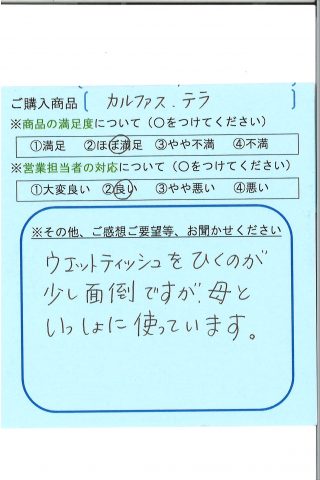 ご購入商品〔 カルファス.テラ 〕
※商品の満足度について(○をつけてください)
①満足 ②ほぼ満足 ③やや不満 ④不満
※営業担当者の対応について(○をつけてください)
①大変良い ②良い ③やや悪い ④悪い
※その他、ご感想ご要望等、お聞かせください
ウエットティッシュをひくのが
少し面倒ですが、母と
いっしょに使っています。